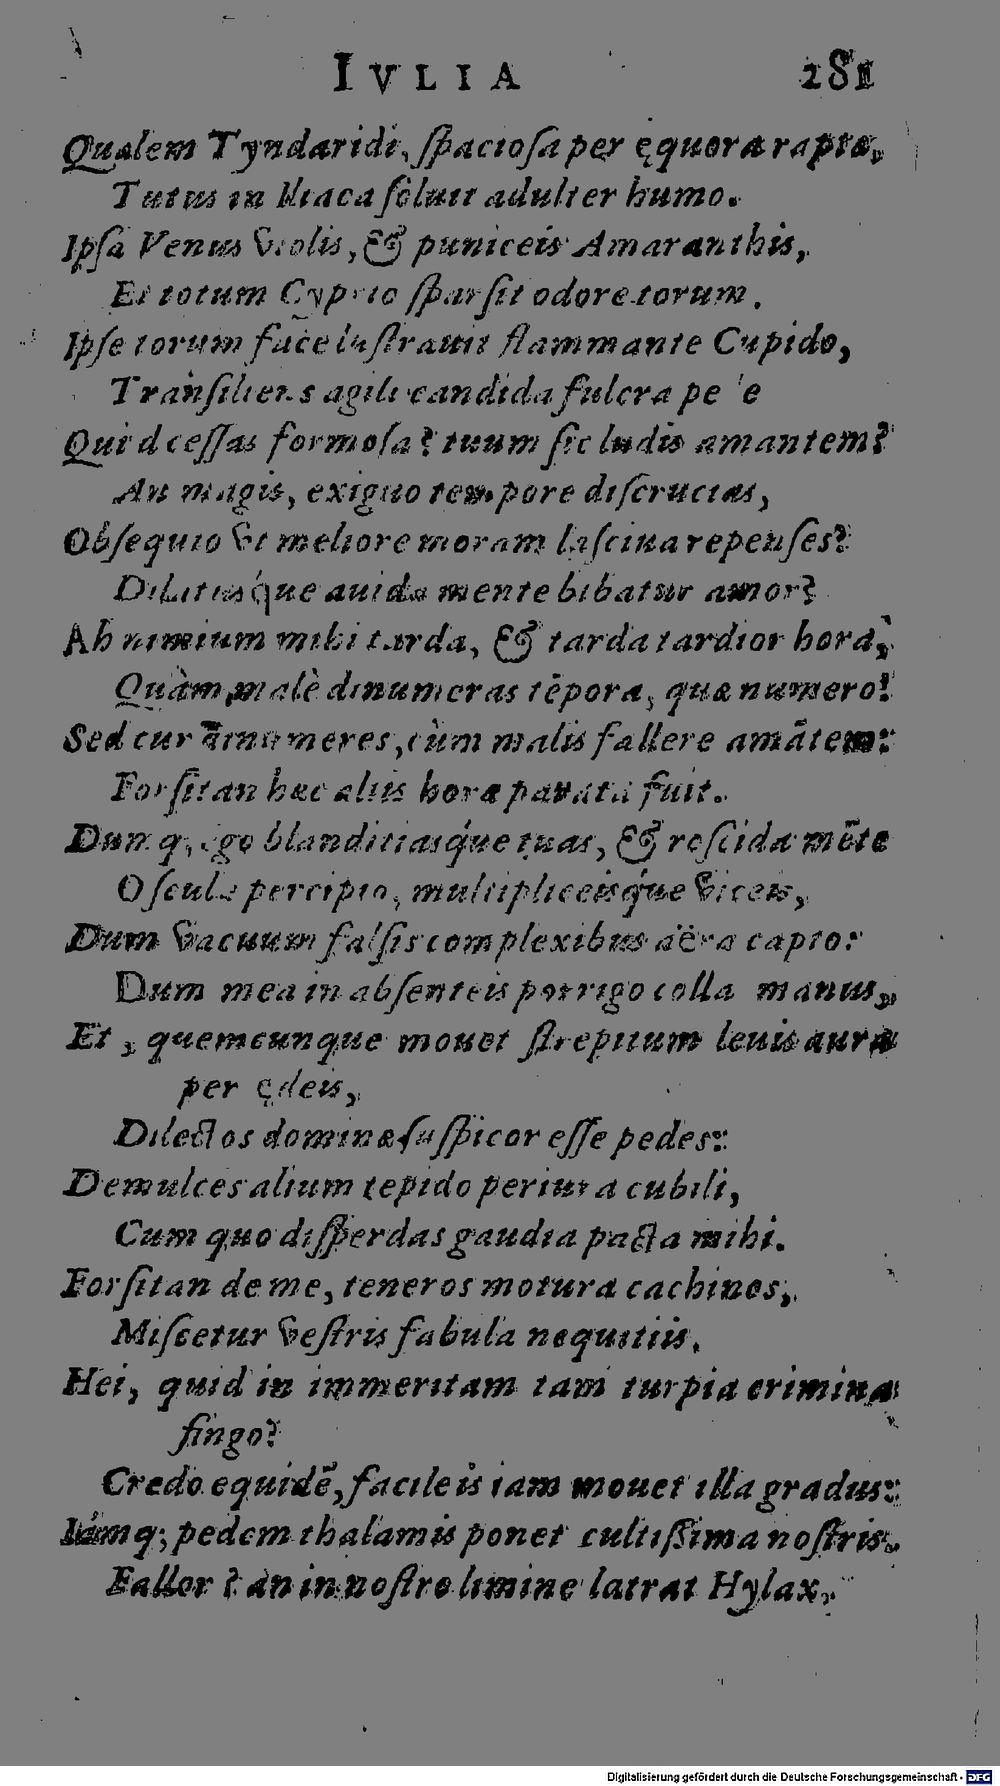 IVLIA 281
Qualem Tyndaridi, ſpacioſa per ęquora raptæ,
Tutus in Iliaca ſoluit adulter humo.
Ipſa Venus violis, & puniceis Amaranthis,
Et totum Cyprio ſparſit odore torum.
Ipſe torum face luſtrauit flammante Cupido,
Tranſiliens agili candida fulcra pe e
Quid ceſſas formoſa? tuum ſic ludis amantem?
An magis, exiguo tempore diſcrucias,
Obſequio vt meliore moram laſciua repenſes?
Dilatusq́ue auida mente bibatur amor?
Ah nimium mihi tarda, & tarda tardior hora,
Quàm malè dinumeras tēpora, quæ numero!
Sed cur dinumeres, cùm malis fallere amātem:
Forſitan hæc aliis hora parata fuit.
Dumq; ego blanditiasq́ue tuas, & roſcida mēte
Oſcula percipio, multipliceisq́ue viceis,
Dum vacuum falſis complexibus aëra capto:
Dum mea in abſenteis porrigo colla manus,
Et, quemcunque mouet ſtrepitum leuis aura
per ędeis,
Dilectos dominæ ſuſpicor eſſe pedes:
Demulces alium tepido periura cubili,
Cum quo diſperdas gaudia pacta mihi.
Forſitan de me, teneros motura cachinos,
Miſcetur veſtris fabula nequitiis.
Hei, quid in immeritam tam turpia crimina
fingo?
Credo equidē, facileis iam mouet illa gradus:
Iámq; pedem thalamis ponet cultiſſima noſtris.
Fallor? an in noſtro limine latrat Hylax,
Digitalisierung gefördert durch die Deutsche Forschungsgemeinschaft - DFG